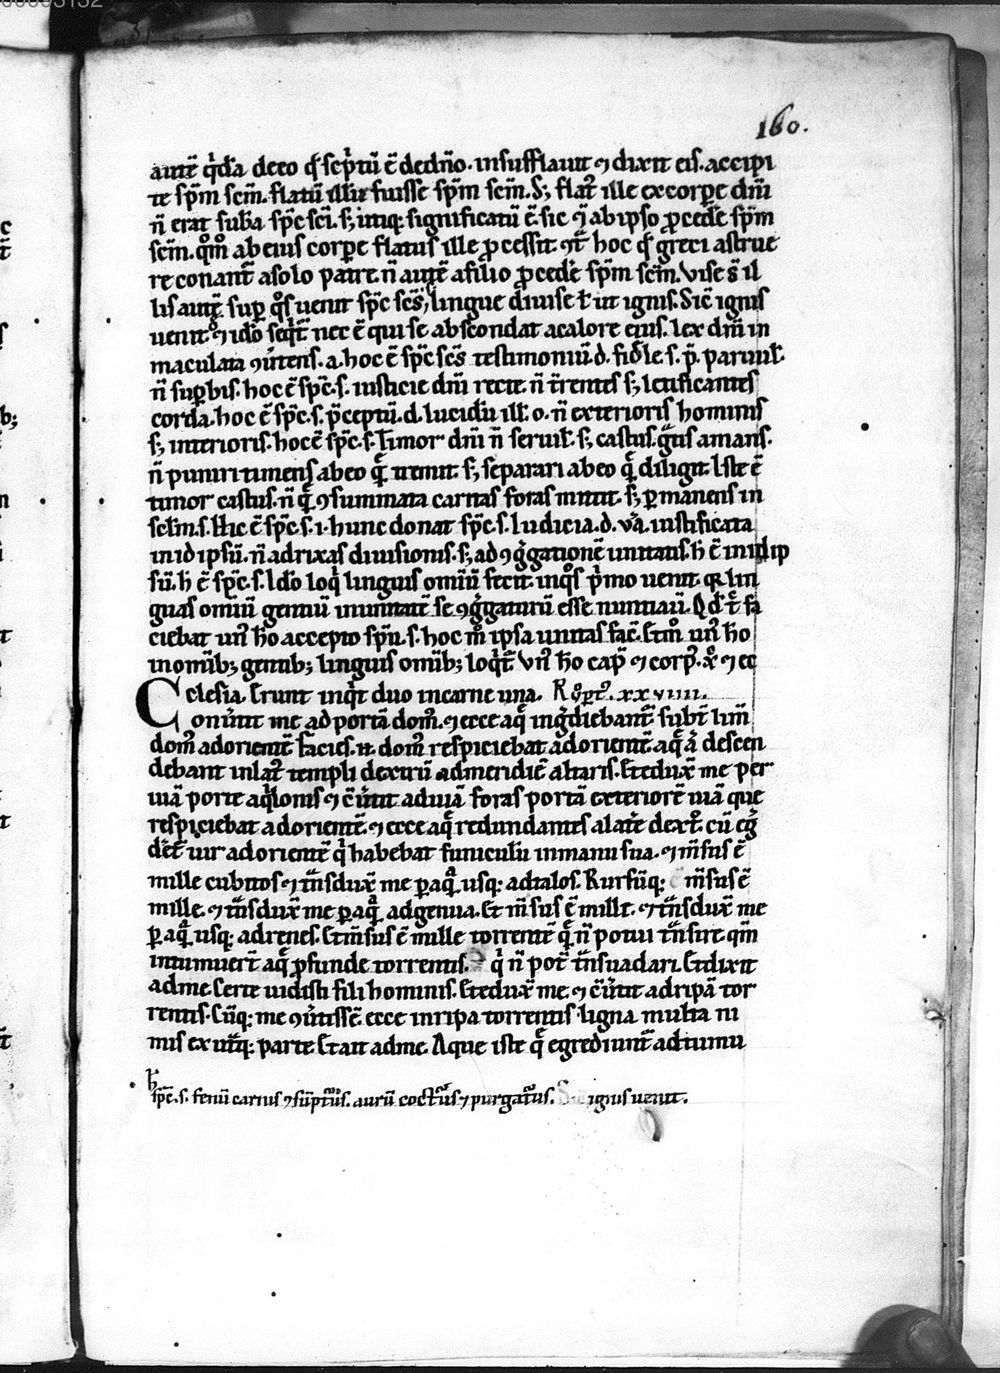 160.
autē q̇dā deeo qđ sc̄ptū ē dedn̄o. insufflauit ⁊ dixit eis. accipi
te sp̄m sc̄m. flatū illū fuisse sp̄m sc̄m. S; flat᷒ ille ex corpe dn̄i
n̄ erat suba sp̄c sc̄i. s; utiq: significatū ē. sic ⁊ ab ipso ꝓcede sp̄m
sc̄m. qm̄ ab eius corpe flatus ille ꝓcessit
hoc qđ greci astrue
re conant̄ a solo patre n̄ autē a filio ꝓcede sp̄m sc̄m. Vise s̄ il
lis autē sup q̊s uenit sp̄c sc̄s, lingue diuise ut ignis. Sic ignis
uenit
nec ē qui se abscondat a calore eius. Lex dn̄i in
maculata ꝯuertens. a. hoc ē sp̄c sc̄s testimoniū. d. fidele. s. p. paruul.
n̄ supbis. hoc ē sp̄c. s. iusticie dn̄i recte n̄ t̄rentes s; letificantes
corda. hoc ē sp̄c. s. p̄ceptū. d. lucidū ill. o. n̄ exterioris hominis
s; interioris. hoc ē sp̄c. s. timor dn̄i n̄ seruil. s; castus. gͣtis amans.
n̄ puniri timens ab eo
s; separari ab eo q̄ diligit. Iste ē
timor castus. n̄ q̄ ꝯsummata caritas foras mittit. s; p manens in
sclm. s. Hic ē sp̄c. s. i. hunc donat sp̄c. s. Iudicia. d. uͣa. iustificata
in id ipsū. n̄ ad rixas diuisionis. s; ad ꝯgͣgationē unitatis. h̄ ē in id ip
sū. h̄ ē sp̄c. s. Ido loq̇ linguis omiū fecit. in q̊s ṗmo uenit. q: lin
guas omiū gentiū in unitatē se ꝯgͣgaturū esse nuntiau
fa
ciebat un᷒ ho accepto sp̄u. s. hoc m̊ ipsa unitas fac
un᷒ ho
in omib; gentib; linguis omib; loq̇t᷒ Vn᷒ ho cap ⁊ corp. x̊ ⁊ ec
clesia. Erunt inq̇t duo in carne una.
xxviiii.
Conūtit me ad portā dom᷒. ⁊ ecce aq̄ ingͣdiebant᷒ subt᷒ lim̄
dom᷒ ad orientē facies. n. dom᷒ respiciebat ad orientē. aq̄ ā descen
debant in lat᷒ templi dextrū ad meridiē altaris. Et eduxͭ me per
uiā porte aq̇lonis ⁊ ꝯūtit ad uiā foras portā exteriorē uiā que
respiciebat ad orientē. ⁊ ecce aq̄ redundantes a late dext᷒. cū eg̊
det᷒ uir ad orientē q̇ habebat funiculū in manu sua. ⁊ m̄sus ē
mille cubitos ⁊ tͣnsduxͭ me p aqͣ usq: ad talos. Rursūq: m̄sus ē
mille. ⁊ tͣnsduxͭ me p aqͣ ad genua. Et m̄sus ē mille. ⁊ tͣnsduxͭ me
p aqͣ usq: ad renes. Et m̄sus ē mille torrentē q̄ n̄ potui tͣnsire qm̄
intumuerͭ aq̄ ꝓfunde torrentis. q̇ n̄ pot᷒ tͣnsuadari. Et dixit
ad me Certe uidisti fili hominis. Et eduxͭ me. ⁊ ꝯūtit ad ripā tor
rentis. Cūq: me ꝯūtissē. ecce in ripa torrentis ligna multa ni
mis ex utͣq: parte Et ait ad me. Aque iste q̄ egrediunt᷒ ad tumu
sp̄c. s. fenū carnis ꝯsūptur᷒. aurū coctur᷒ ⁊ purgatur᷒. Sic ignis uenit.